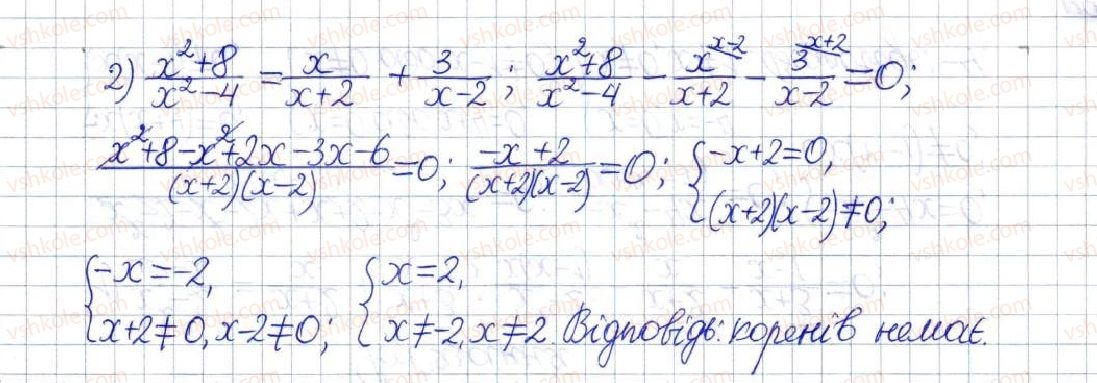 2) (x²+8)/(x²-4) = x/(x+2) + 3/(x-2); (x²+8)/(x²-4) - x^(x-2)/(x+2) - 3^(x+2)/(x-2) = 0;
(x²+8-x²+2x-3x-6)/((x+2)(x-2)) = 0; (-x+2)/((x+2)(x-2)) = 0; { -x+2=0, (x+2)(x-2)≠0;
{ -x=-2, x+2≠0, x-2≠0; { x=2, x≠-2, x≠2. Відповідь: коренів немає.